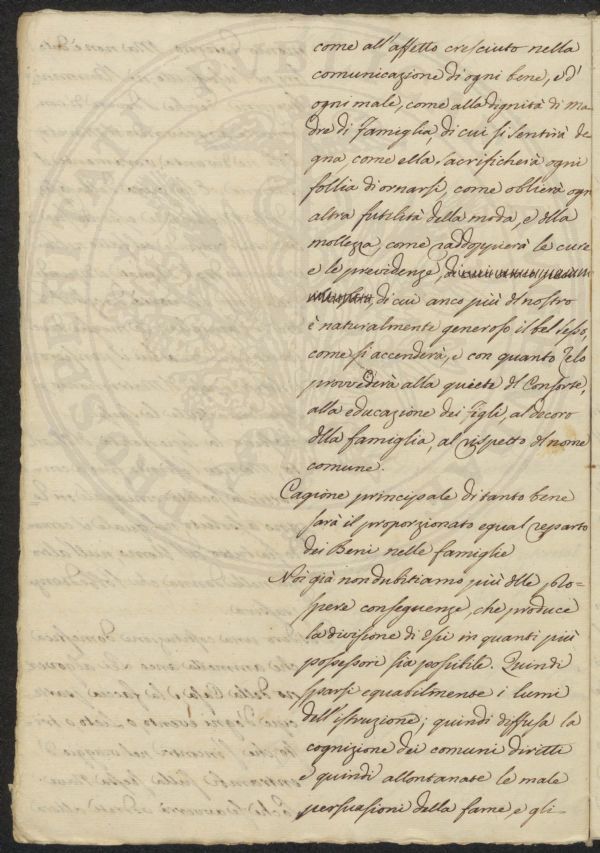 come all'affetto cresciuto nella
comunicazione di ogni bene, e d'
ogni male, come alla dignità di Ma-
dre di Famiglia, di cui si sentirà de-
gna, come ella sacrificherà ogni
follia di ornarsi, come oblierà ogn
altra futilità della moda, e della
mollezza, come raddoppierà le cure
e le previdenze, di cui anco più del nostro
è naturalmente generoso il bel sesso,
come si accenderà, e con quanto Zelo
provvederà alla quiete del Consorte,
alla educazione dei Figli, al decoro
della famiglia, al rispetto del nome
comune.
Cagione principale di tanto bene
sarà il proporzionato equal reparto
dei Beni nelle famiglie
Noi già non dubitiamo più delle pro-
spere conseguenze, che produce
la divisione di essi in quanti più
possessori sia possibile. Quindi
sparsi equabilmente i lumi
dell'istruzione; quindi diffusa la
cognizione dei comuni diritti
e quindi allontanate le male
persuasioni della fame, e gli